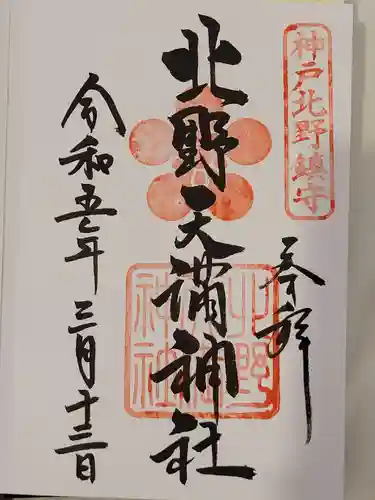 神戸北野鎮守
奉拝
北野天満神社
北野天満神社
令和五年三月十三日